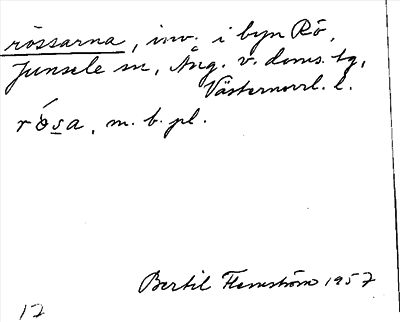 rössarna, inv. i byn Rö,
Junsele sn, Ång. v. doms. tg,
Västernorrl. l.
rósa, m. b. pl.
Bertil Flemström 1957
17